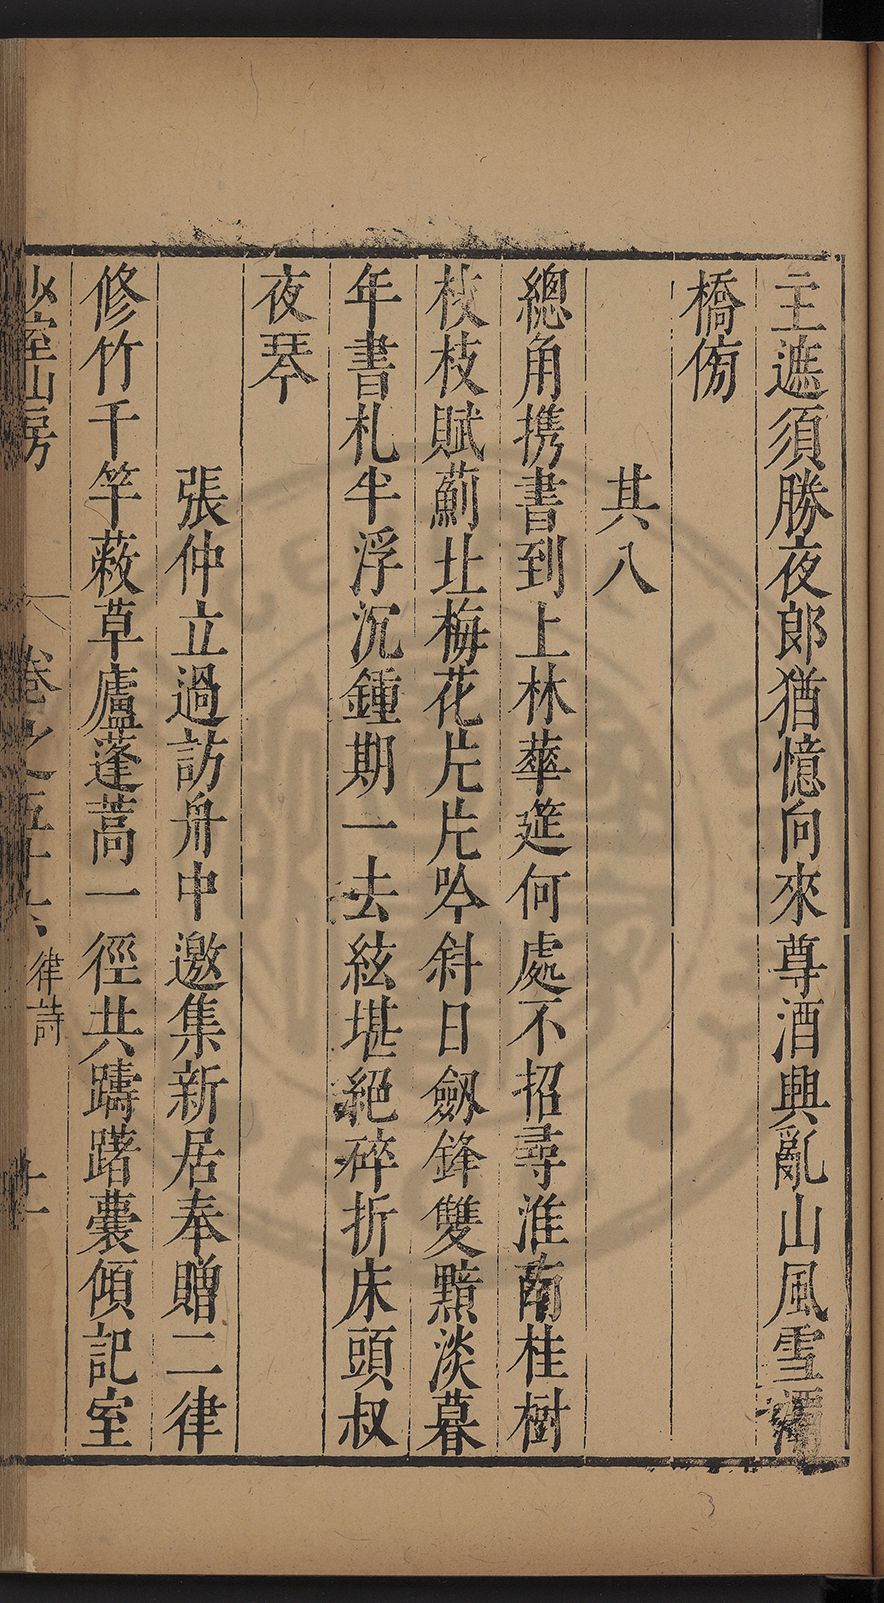 主遮須勝夜郎猶憶向來尊酒興亂山風雪灞
橋傍
其八
總角携書到上林華筵何處不招尋淮南桂樹
枝枝賦薊北梅花片片吟斜日劔鋒雙黯淡暮
年書札半浮沉鍾期一去絃堪絕碎折床頭叔
夜琴
張仲立過訪舟中邀集新居奉贈二律
修竹千竿蔽草廬蓬蒿一徑共躊躇囊傾記室
少室山房 卷之五十六 律詩 十一